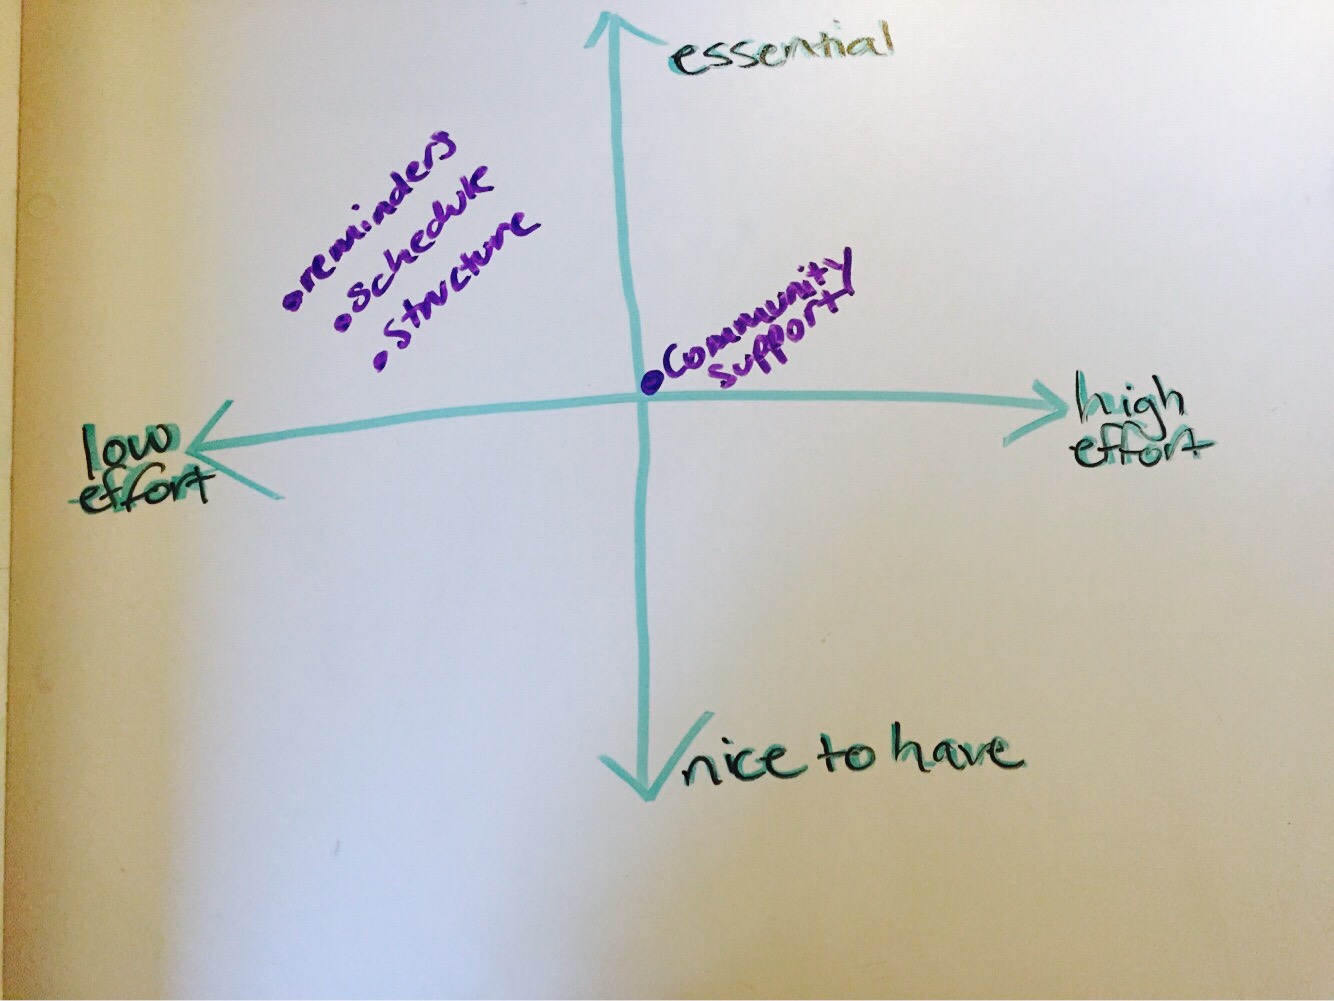 essential
•reminders
•schedule
•structure
•Community
support
low
effort
high
effort
nice to have